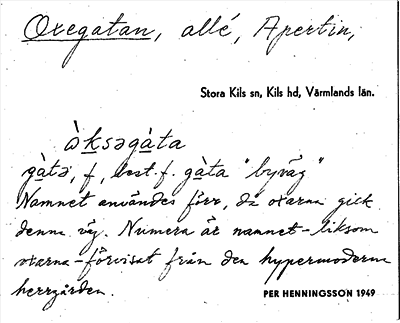 Oxegatan, allé, Apertin,
Stora Kils sn, Kils hd, Värmlands län.
ɔ̀ksəgàta
gàtə, f, best. f. gàta "byväg"
Namnet användes förr, då oxarna gick
denna väg. Numera är namnet – liksom
oxarna – förvisat från den hypermoderna
herrgården.
PER HENNINGSSON 1949